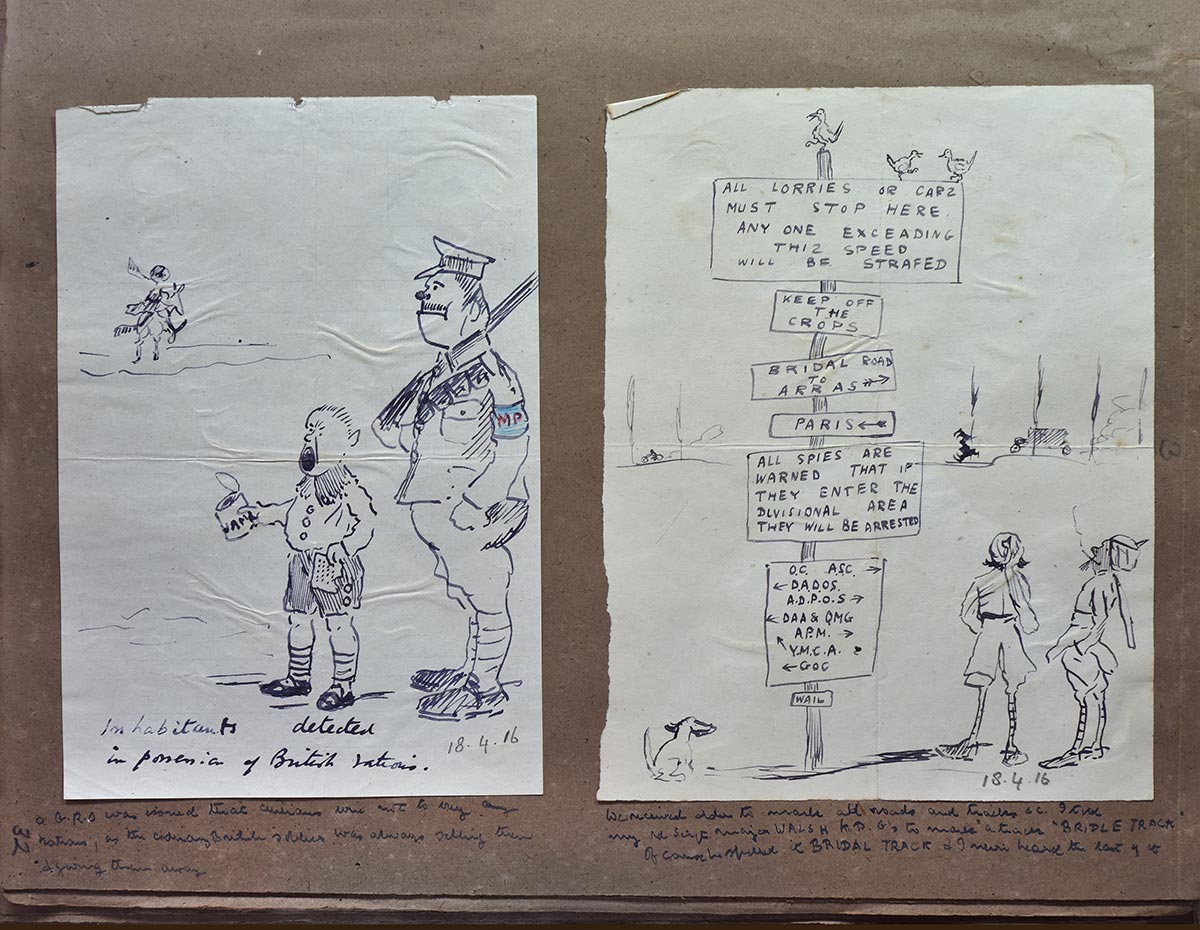 MP
JAM
Inhabitants detected
in possession of British rations.
18.4.16
was issued that civilians were not to buy any
rations, as the ordinary British soldier was always selling them
& giving them away
ALL LORRIES OR CARS
MUST STOP HERE.
ANY ONE EXCEADING
THIS SPEED
WILL BE STRAFED
KEEP OFF
THE
CROPS
BRIDAL ROAD
TO
ARRAS
PARIS
ALL SPIES ARE
WARNED THAT IF
THEY ENTER THE
DIVISIONAL AREA
THEY WILL BE ARRESTED
O.C. A.S.C.
D.A.D.O.S.
A.D.P.O.S
DAA & QMG
A.P.M.
Y.M.C.A.
GOC
WAIL
18.4.16
We received orders to mark all roads and tracks &c. I told
my Sergt major WALSH M.P. to mark a track "BRIDLE TRACK"
Of course he spelled it BRIDAL TRACK & I never heard the last of it